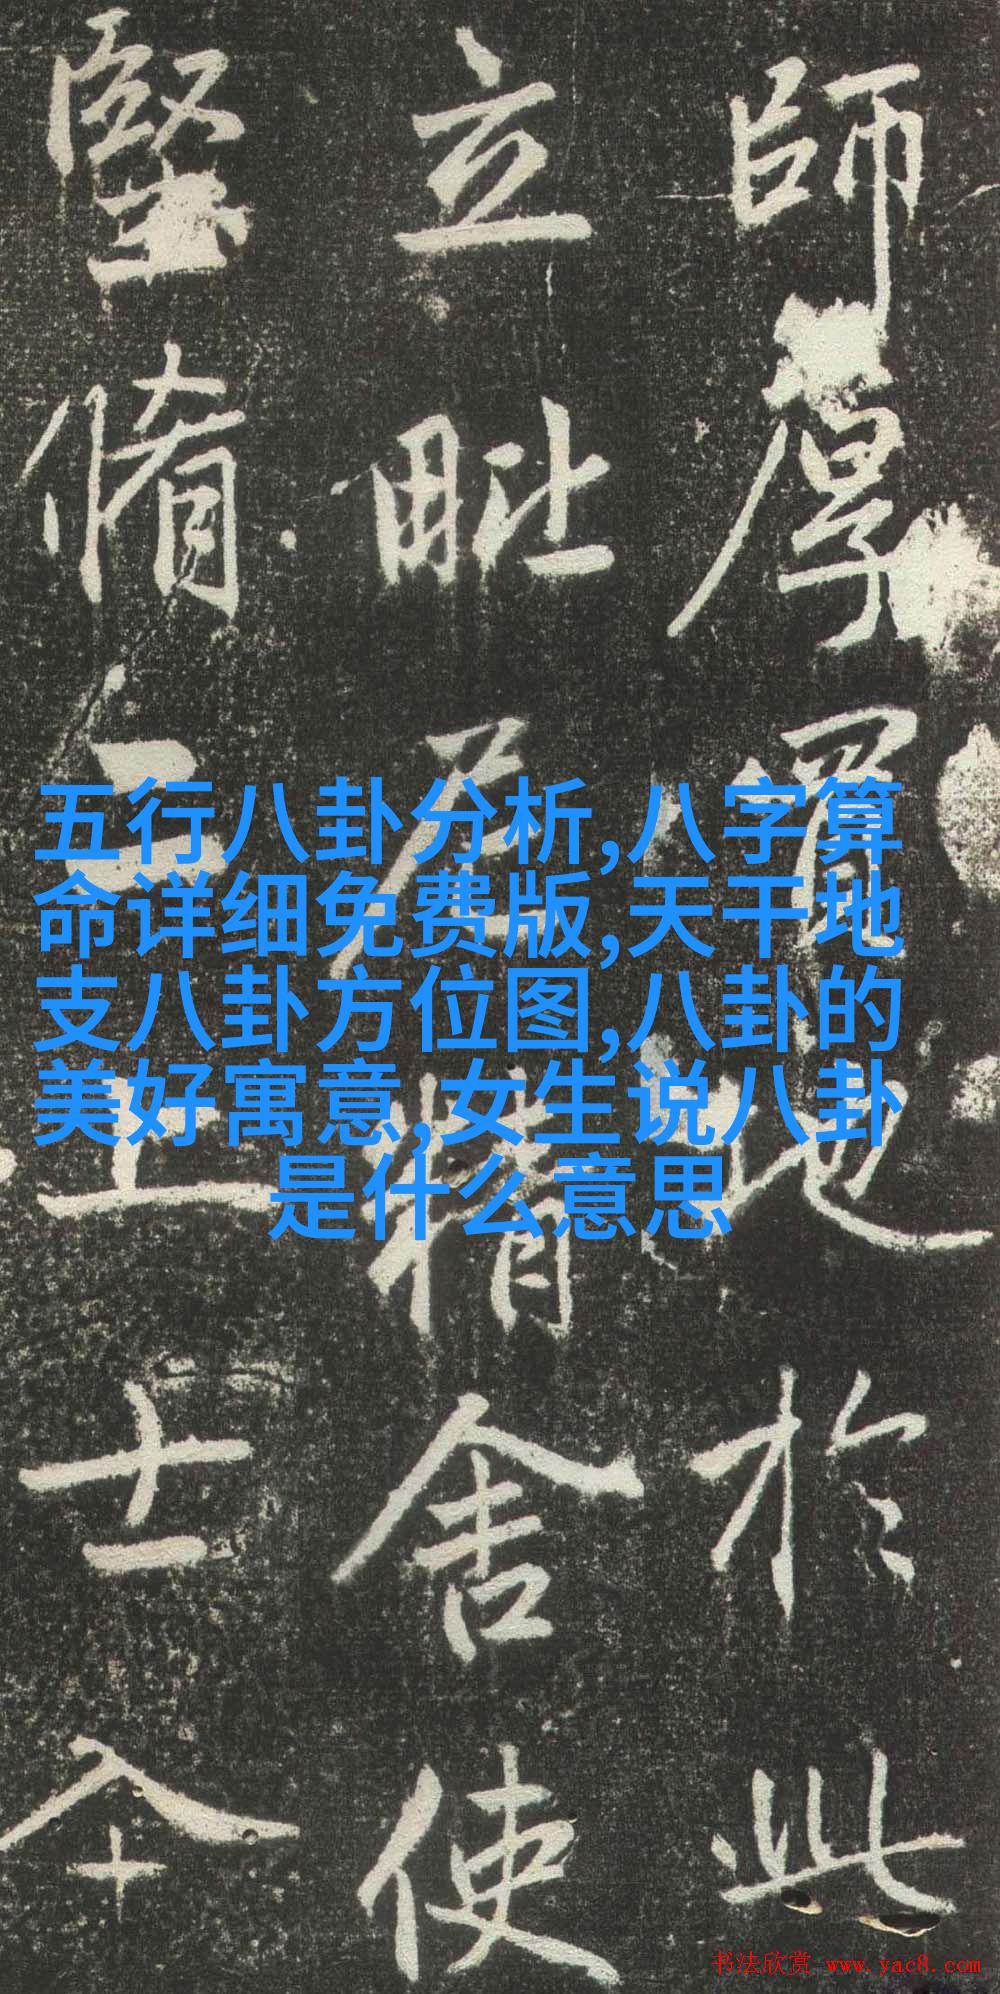 師厚買地於此
立毗尼精舍使
堅脩
五行八卦分析,八字算
命详细免费版,天干地
支八卦方位图,八卦的
美好寓意,女生说八卦
是什么意思
书法欣赏 www.yac8.com